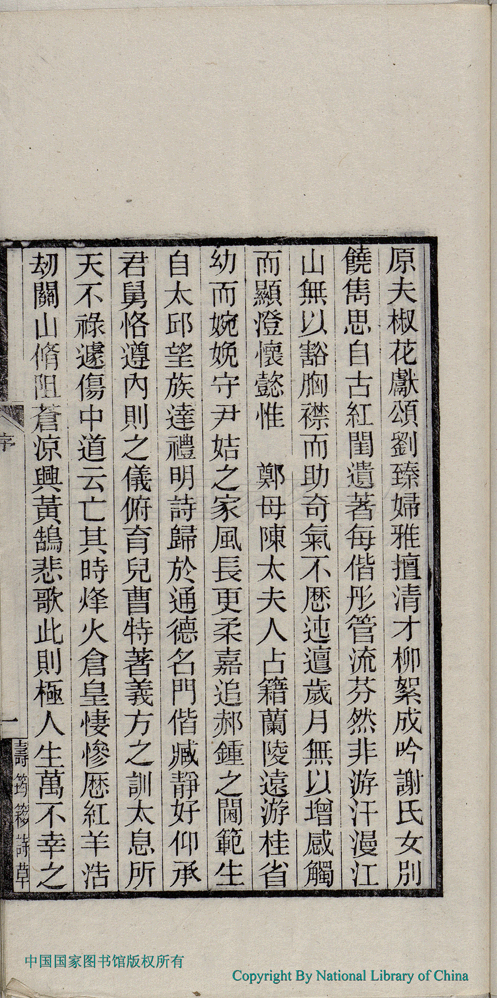 原夫椒花獻頌劉臻婦雅擅清才柳絮成吟謝氏女別
饒雋思自古紅閨遺著每偕彤管流芬然非游汗漫江
山無以豁胸襟而助奇氣不歷迍邅歲月無以增感觸
而顯澄懷懿惟　鄭母陳太夫人占籍蘭陵遠游桂省
幼而婉娩守尹姞之家風長更柔嘉追郝鍾之閫範生
自太邱望族達禮明詩歸於通德名門偕臧靜好仰承
君舅恪遵內則之儀俯育兒曹特著義方之訓太息所
天不祿遽傷中道云亡其時烽火倉皇悽慘歷紅羊浩
劫關山脩阻蒼涼興黃鵠悲歌此則極人生萬不幸之
序
一
壽筠簃詩草
中国国家图书馆版权所有
Copyright By National Library of China